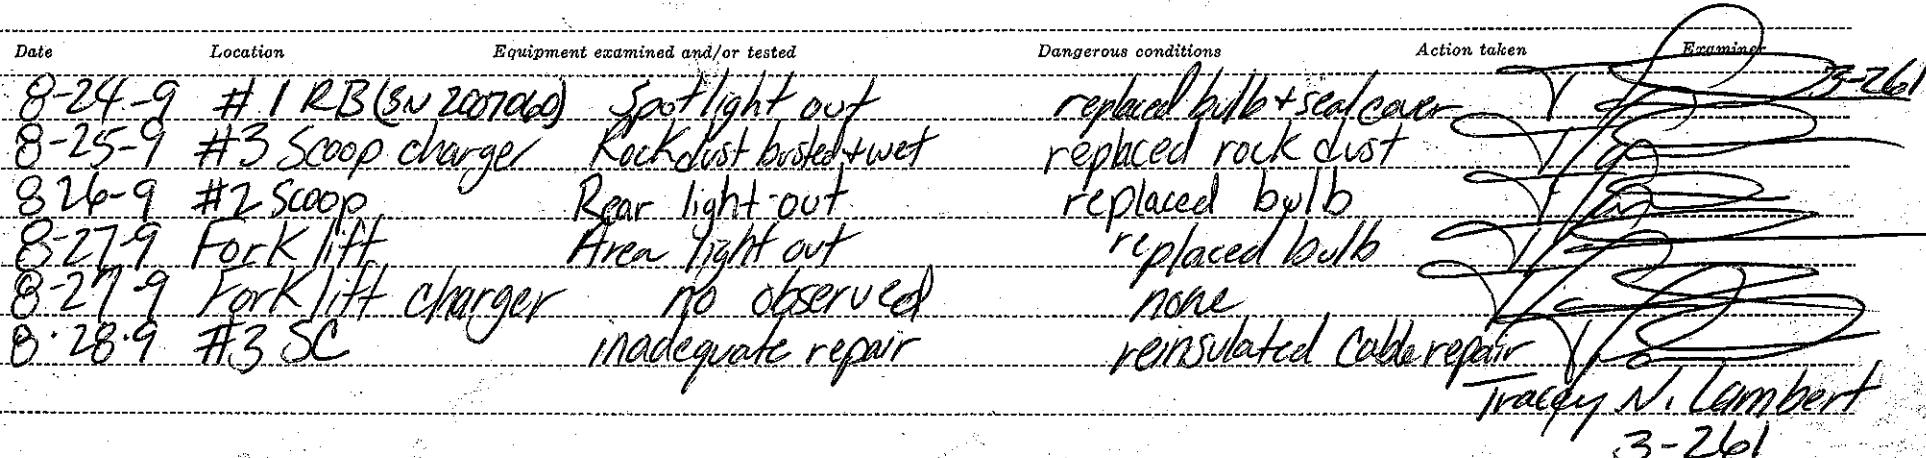 Date Location Equipment examined and/or tested Dangerous conditions Action taken Examiner
8-24-9 #1 RB (SN 2007060) Spotlight out replaced bulb + seal cover 23-261
8-25-9 #3 Scoop charger Rockdust busted + wet replaced rock dust
8 26-9 #2 Scoop Rear light out replaced bulb
8-27-9 Fork lift Area light out replaced bulb
8-27-9 Fork lift charger no observed none
8-28-9 #3 SC inadequate repair reinsulated cable repair
Tracey N. Lambert
3-261